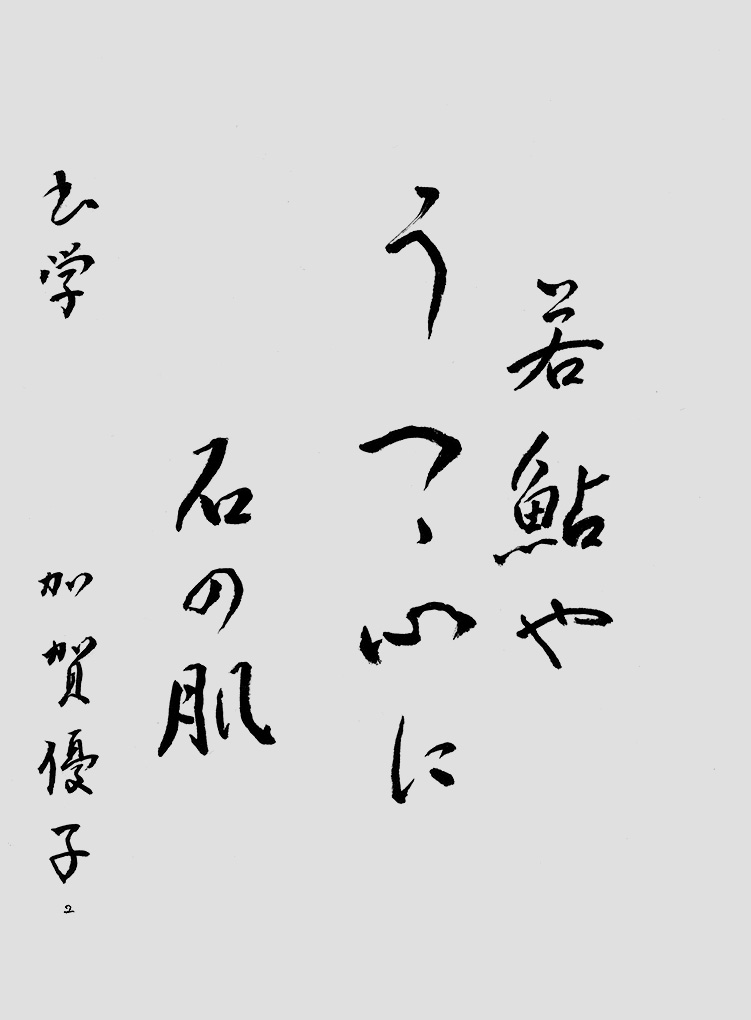 若鮎や
うつゝ心に
石の肌
書学 加賀優子
2